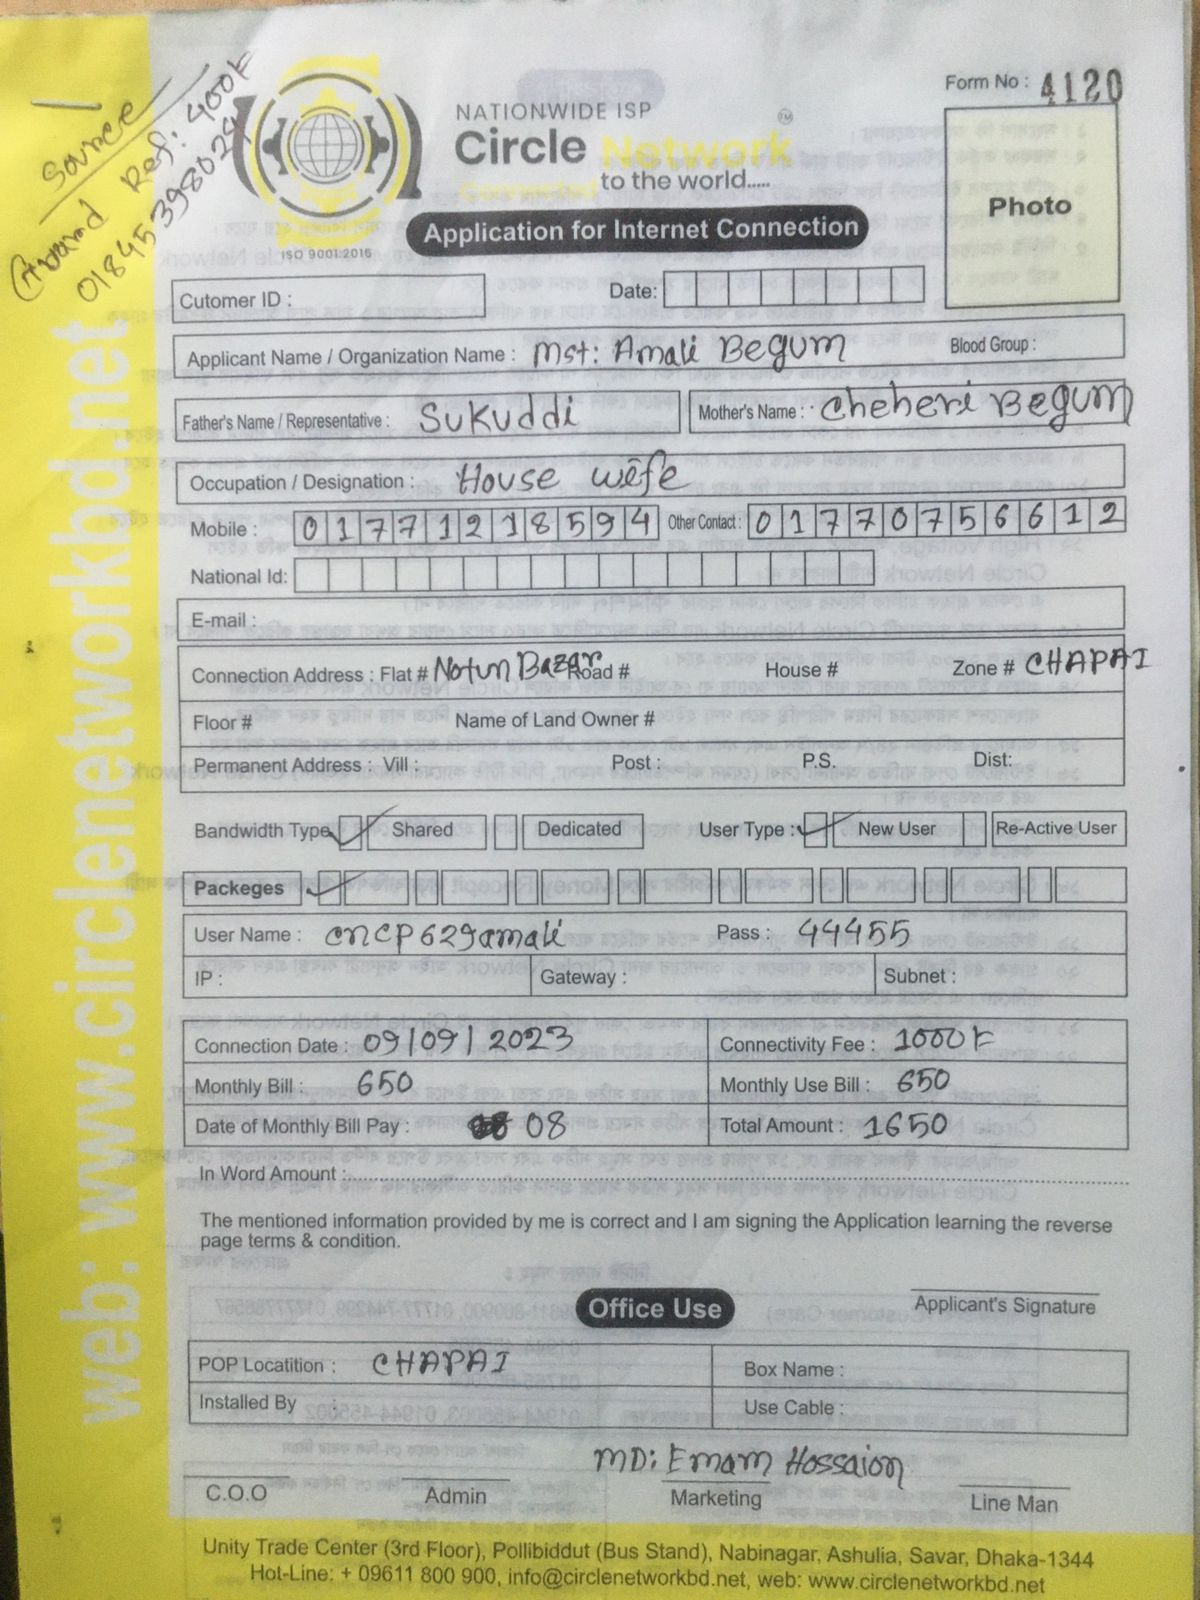 Source
Ref: 400৳
01845398024
Form No : 4120
NATIONWIDE ISP
Circle Network
TM
Connected to the world.....
Photo
Application for Internet Connection
ISO 9001:2016
Cutomer ID :
Date:
Applicant Name / Organization Name : Mst: Amali Begum Blood Group :
Father's Name / Representative : SUKUddi Mother's Name : Cheheri Begum
Occupation / Designation : House wife
Mobile : 01771218594 Other Contact : 01770756612
National Id:
E-mail :
Connection Address : Flat # Notun Bazar Road # House # Zone # CHAPAI
Floor # Name of Land Owner #
Permanent Address : Vill : Post : P.S. Dist:
Bandwidth Type Shared Dedicated User Type : New User Re-Active User
Packeges
User Name : cncp629amali Pass : 44455
IP : Gateway : Subnet :
Connection Date : 09/09/2023 Connectivity Fee : 1000৳
Monthly Bill : 650 Monthly Use Bill : 650
Date of Monthly Bill Pay : 08 Total Amount : 1650
In Word Amount :
The mentioned information provided by me is correct and I am signing the Application learning the reverse
page terms & condition.
Applicant's Signature
Office Use
POP Locatition : CHAPAI Box Name :
Installed By : Use Cable :
MD: Emam Hossaion
C.O.O Admin Marketing Line Man
Unity Trade Center (3rd Floor), Pollibiddut (Bus Stand), Nabinagar, Ashulia, Savar, Dhaka-1344
Hot-Line: + 09611 800 900, info@circlenetworkbd.net, web: www.circlenetworkbd.net
web: www.circlenetworkbd.net